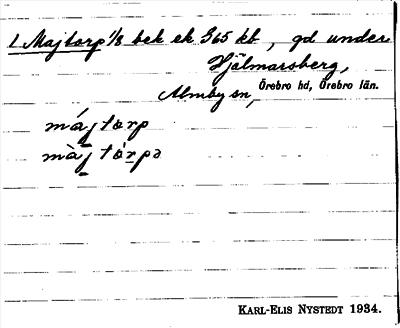 1 Majtorp 1/8 bek ek S65 kb, gd under
Hjälmarsberg,
Almby sn, Örebro hd, Örebro län.
májtɷrp
màjtɷ́rpə
KARL-ELIS NYSTEDT 1934.